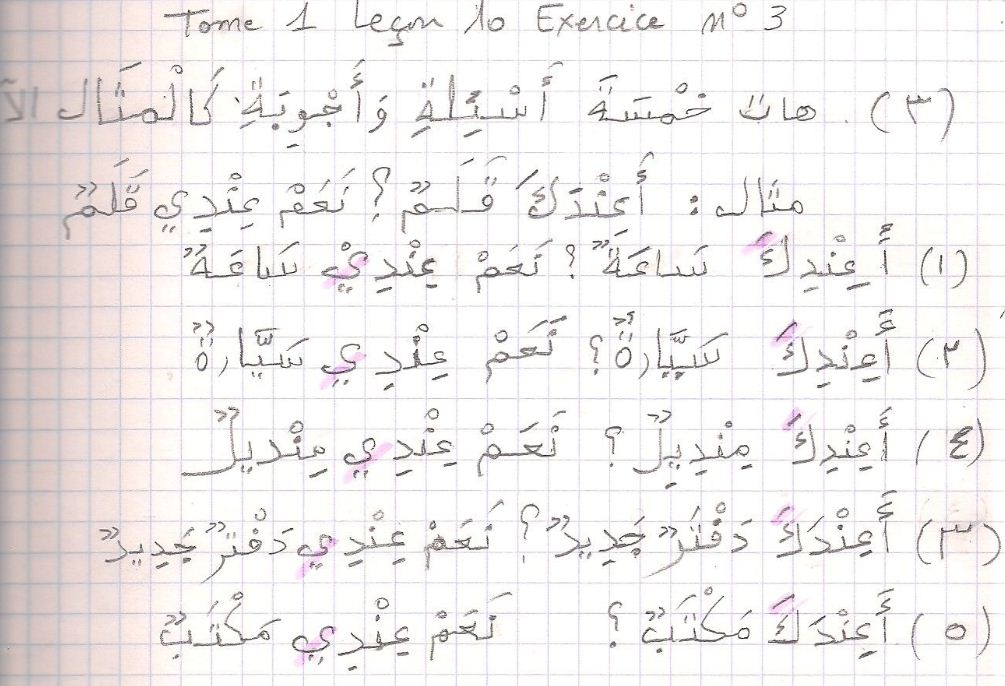 Tome 1 Leçon 10 Exercice n° 3
(٣). هات خَمْسَةَ أَسْئِلَةٍ وَأَجْوِبَةٍ كَالْمثَال الآ
مثال : أَعِنْدَكَ قَلَمٌ؟ نَعَمْ عِنْدِي قَلَمٌ
(١) أَعِنْدِكَ سَاعَةٌ؟ نَعَمْ عِنْدِيْ سَاعَةٌ
(٢) أَعِنْدِكَ سَيَّارةٌ؟ نَعَمْ عِنْدِي سَيَّارةٌ
(٤) أَعِنْدِكَ مِنْدِيلٌ؟ نَعَمْ عِنْدِي مِنْديلٌ
(٣) أَعِنْدَكَ دَفْتَرٌ جَدِيدٌ؟ نَعَمْ عِنْدِي دَفْتَرٌ جَدِيدٌ
(٥) أَعِنْدَكَ مَكْتَبٌ؟ نَعَمْ عِنْدِي مَكْتَبٌ